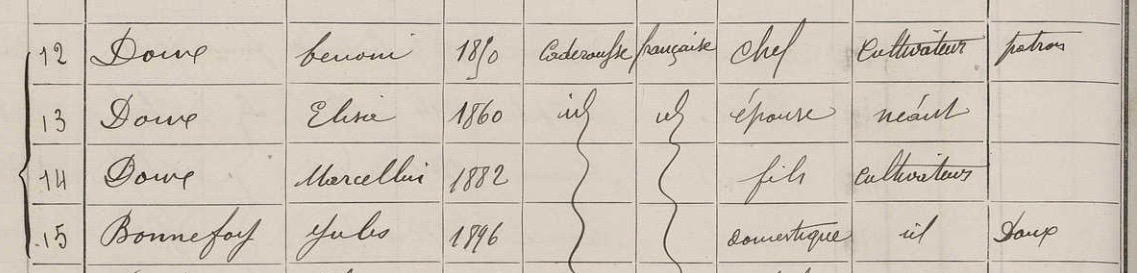 12 Doux benoni 1850 Caderousse française chef Cultivateur patron
13 Doux Elisie 1860 id id épouse néant
14 Doux Marcellin 1882 fils Cultivateur
15 Bonnefoy Jules 1896 domestique id Doux